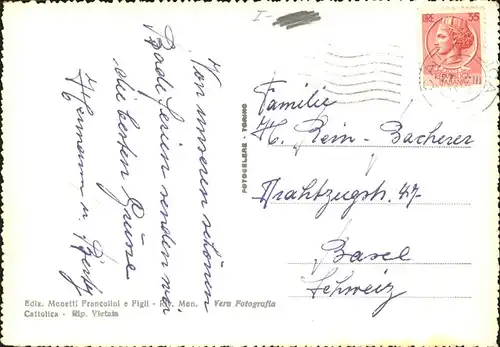 I-
LIRE 35
Von unseren schönen
Badeferien senden wir
die besten Grüsse
Hermann u. Betty
FOTOCELERE - TORINO
Familie
H. Rein-Bacherer
Drahtzugstr. 47-
Basel
Schweiz
Ediz. Monetti Francolini e Figli - Riv. Men. - Vera Fotografia
Cattolica - Rip. Vietata